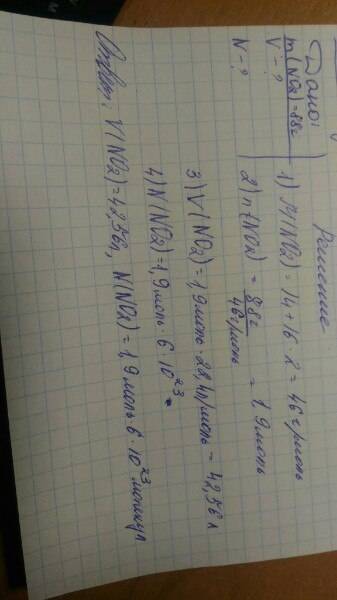 Дано:
m(NO₂)=88г
V-?
N-?
Решение
1) M(NO₂) = 14+16·2 = 46г/моль
2) n(NO₂) = 88г / 46г/моль = 1,9моль
3) V(NO₂)=1,9моль·22,4л/моль=42,56л
4) N(NO₂)=1,9моль·6·10²³
Ответ: V(NO₂)=42,56л, N(NO₂)=1,9моль·6·10²³молекул